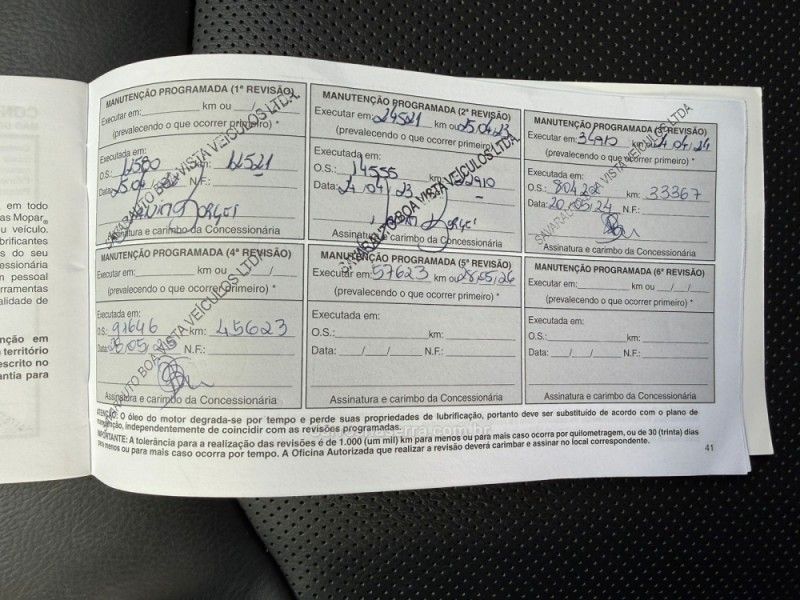 em todo
as Mopar®
u veículo.
brificantes
s do seu
cessionária
m pessoal
rramentas
alidade de
nção em
território
escrito no
antia para
MANUTENÇÃO PROGRAMADA (1ª REVISÃO)
Executar em: km ou / /
(prevalecendo o que ocorrer primeiro) *
Executada em:
O.S.: km: 12521
Data: 25/04/ N.F.:
Assinatura e carimbo da Concessionária
SAVARAUTO BOA VISTA VEÍCULOS LTDA
MANUTENÇÃO PROGRAMADA (2ª REVISÃO)
Executar em: 24521 km ou 25/04/23
(prevalecendo o que ocorrer primeiro) *
Executada em:
O.S.: 14555 km: 22910
Data: 24/04/23 N.F.:
Assinatura e carimbo da Concessionária
SAVARAUTO BOA VISTA VEÍCULOS LTDA
MANUTENÇÃO PROGRAMADA (3ª REVISÃO)
Executar em: 34910 km ou 24/04/24
(prevalecendo o que ocorrer primeiro) *
Executada em:
O.S.: 80428 km: 33367
Data: 20/05/24 N.F.:
Assinatura e carimbo da Concessionária
SAVARAUTO BOA VISTA VEÍCULOS LTDA
MANUTENÇÃO PROGRAMADA (4ª REVISÃO)
Executar em: km ou / /
(prevalecendo o que ocorrer primeiro) *
Executada em:
O.S.: 91646 km: 45623
Data: /05/25 N.F.:
Assinatura e carimbo da Concessionária
SAVARAUTO BOA VISTA VEÍCULOS LTDA
MANUTENÇÃO PROGRAMADA (5ª REVISÃO)
Executar em: 57623 km ou 28/05/26
(prevalecendo o que ocorrer primeiro) *
Executada em:
O.S.: km:
Data: / / N.F.:
Assinatura e carimbo da Concessionária
MANUTENÇÃO PROGRAMADA (6ª REVISÃO)
Executar em: km ou / /
(prevalecendo o que ocorrer primeiro) *
Executada em:
O.S.: km:
Data: / / N.F.:
Assinatura e carimbo da Concessionária
ATENÇÃO: O óleo do motor degrada-se por tempo e perde suas propriedades de lubrificação, portanto deve ser substituído de acordo com o plano de
manutenção, independentemente de coincidir com as revisões programadas.
IMPORTANTE: A tolerância para a realização das revisões é de 1.000 (um mil) km para menos ou para mais caso ocorra por quilometragem, ou de 30 (trinta) dias
para menos ou para mais caso ocorra por tempo. A Oficina Autorizada que realizar a revisão deverá carimbar e assinar no local correspondente.
41